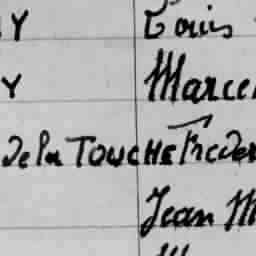 Y Louis
Y Marcel
De la TOUCHE Freder
Jean M